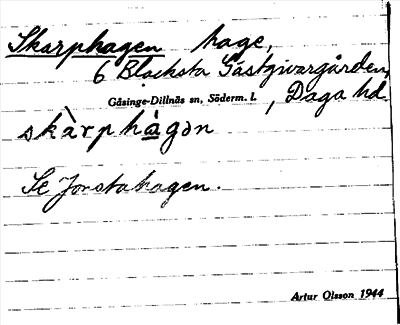 Skarphagen hage,
6 Blacksta Gästgivargården,
Gåsinge-Dillnäs sn, Söderm. l. , Daga hd
skàrphàgən
Se Jorstahagen.
Artur Olsson 1944